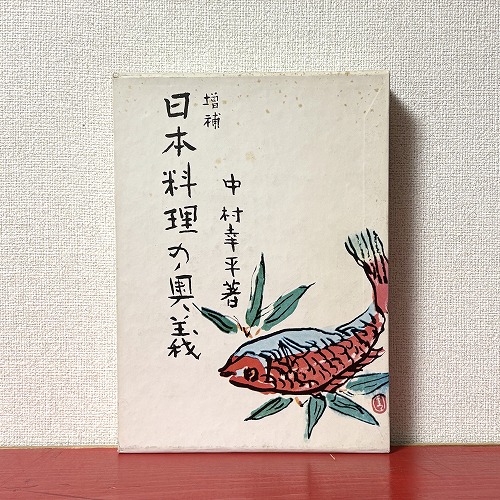 増補
日本料理の奥義
中村幸平著